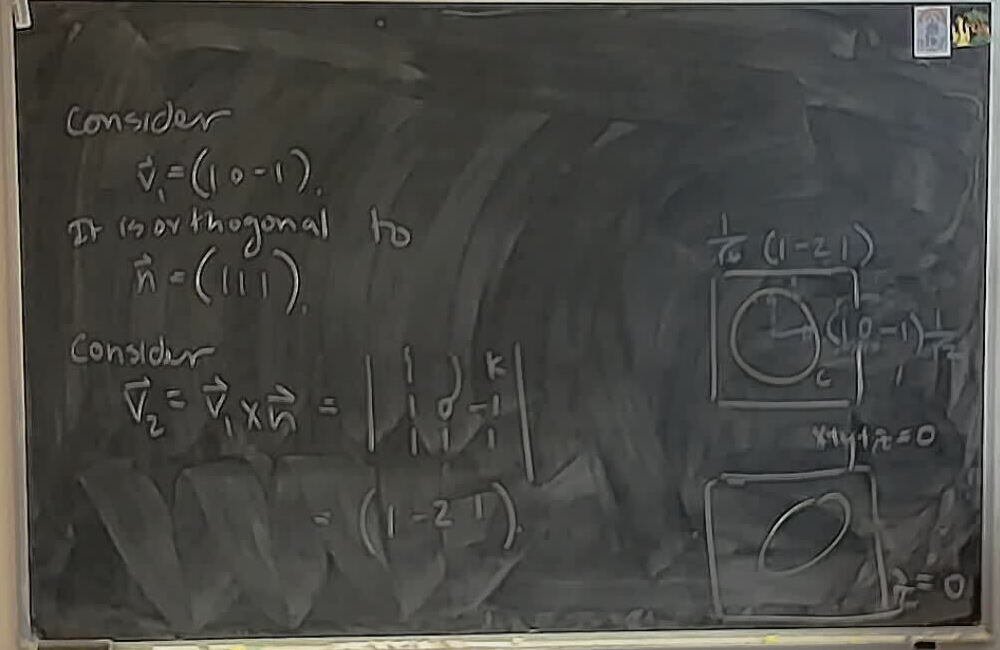 Consider
v⃗₁ = (1 0 -1).
It is orthogonal to
n⃗ = (1 1 1).
Consider
v⃗₂ = v⃗₁ × n⃗ = | i j k |
| 1 0 -1 |
| 1 1 1 |
= (1 -2 1).
1/√6 (1 -2 1)
(1 0 -1) 1/√2
C
x+y+z=0
z=0